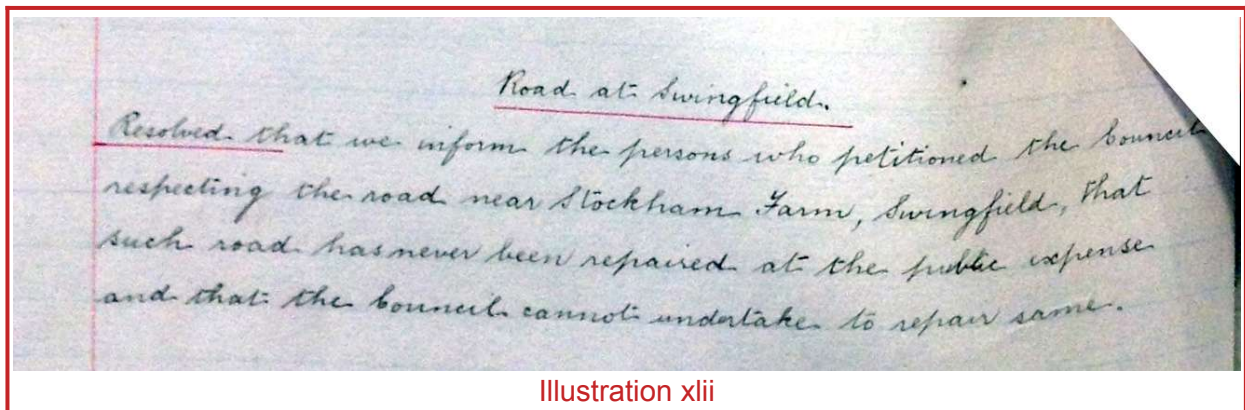 Road at Swingfield.
Resolved that we inform the persons who petitioned the Council
respecting the road near Stockham Farm, Swingfield, that
such road has never been repaired at the public expense
and that the Council cannot undertake to repair same.
Illustration xlii